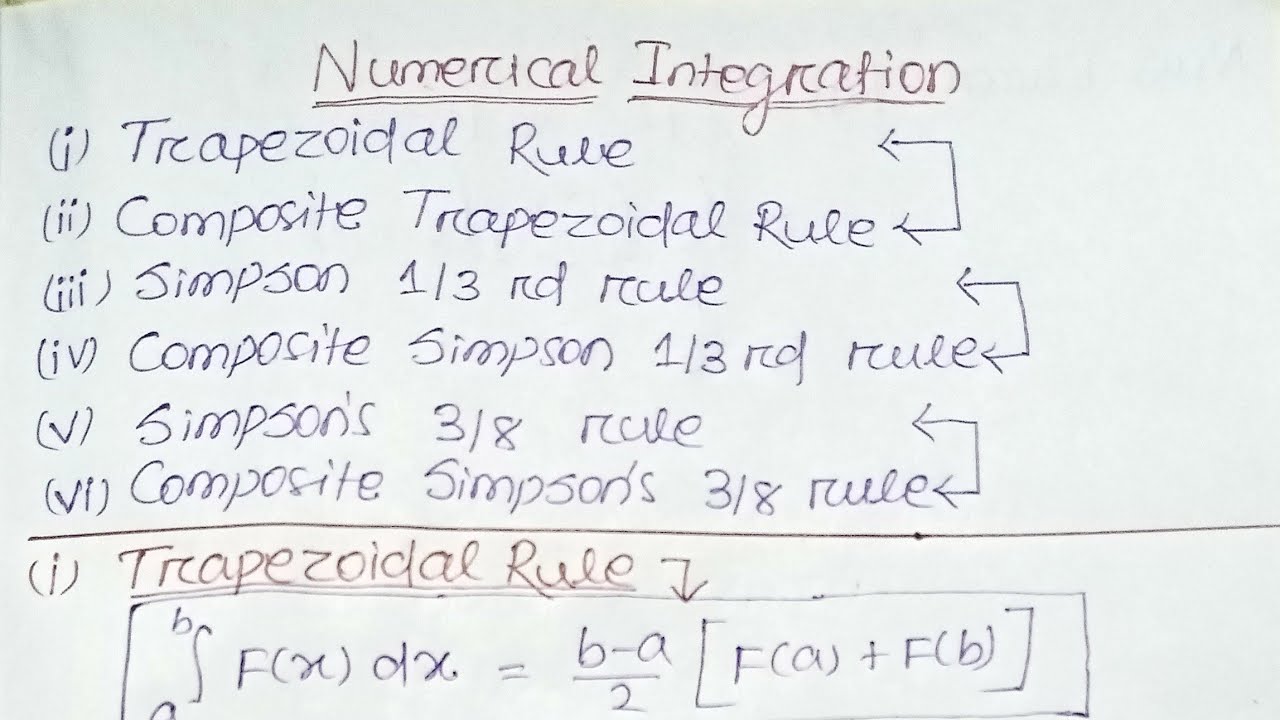 Numerical Integration
(i) Trapezoidal Rule
(ii) Composite Trapezoidal Rule
(iii) Simpson 1/3 rd rule
(iv) Composite Simpson 1/3 rd rule
(v) Simpson's 3/8 rule
(vi) Composite Simpson's 3/8 rule
(i) Trapezoidal Rule
b∫a F(x) dx = b-a/2 [F(a) + F(b)]